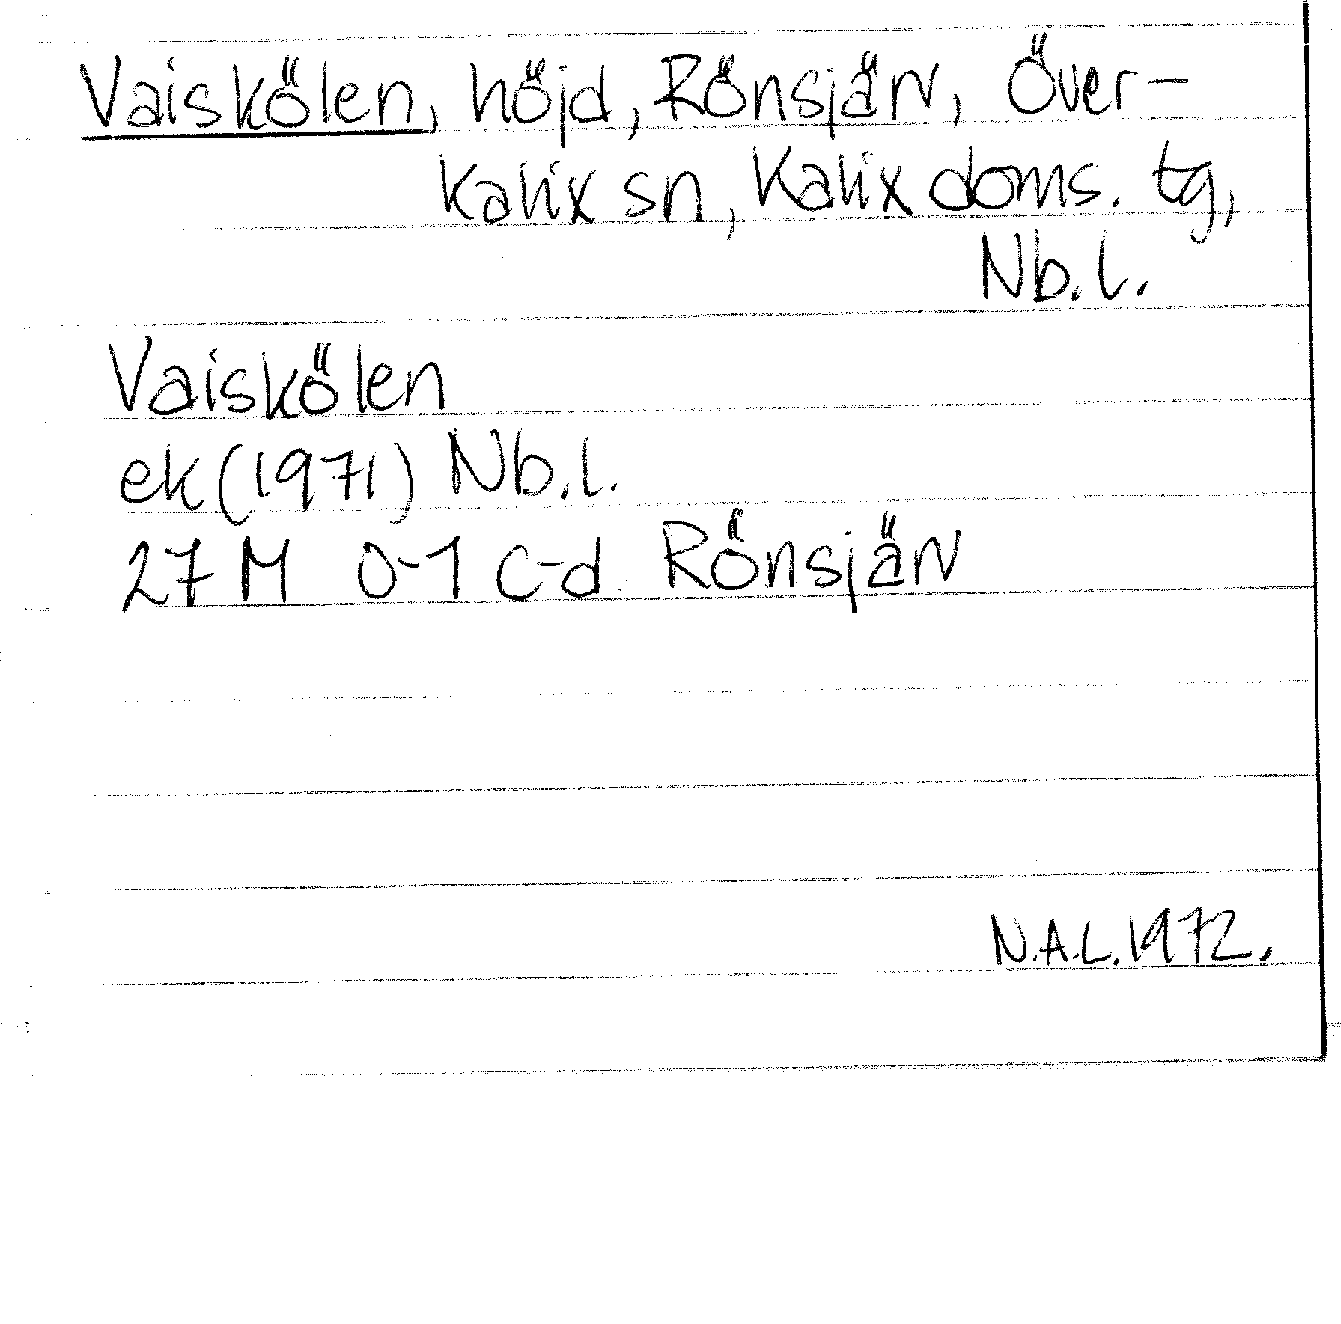 Vaiskölen, höjd, Rönsjärv, Över-
kalix sn, Kalix doms. tg,
Nb.l.
Vaiskölen
ek (1971) Nb.l.
27 M 0-1 c-d Rönsjärv
N.A.L. 1972.